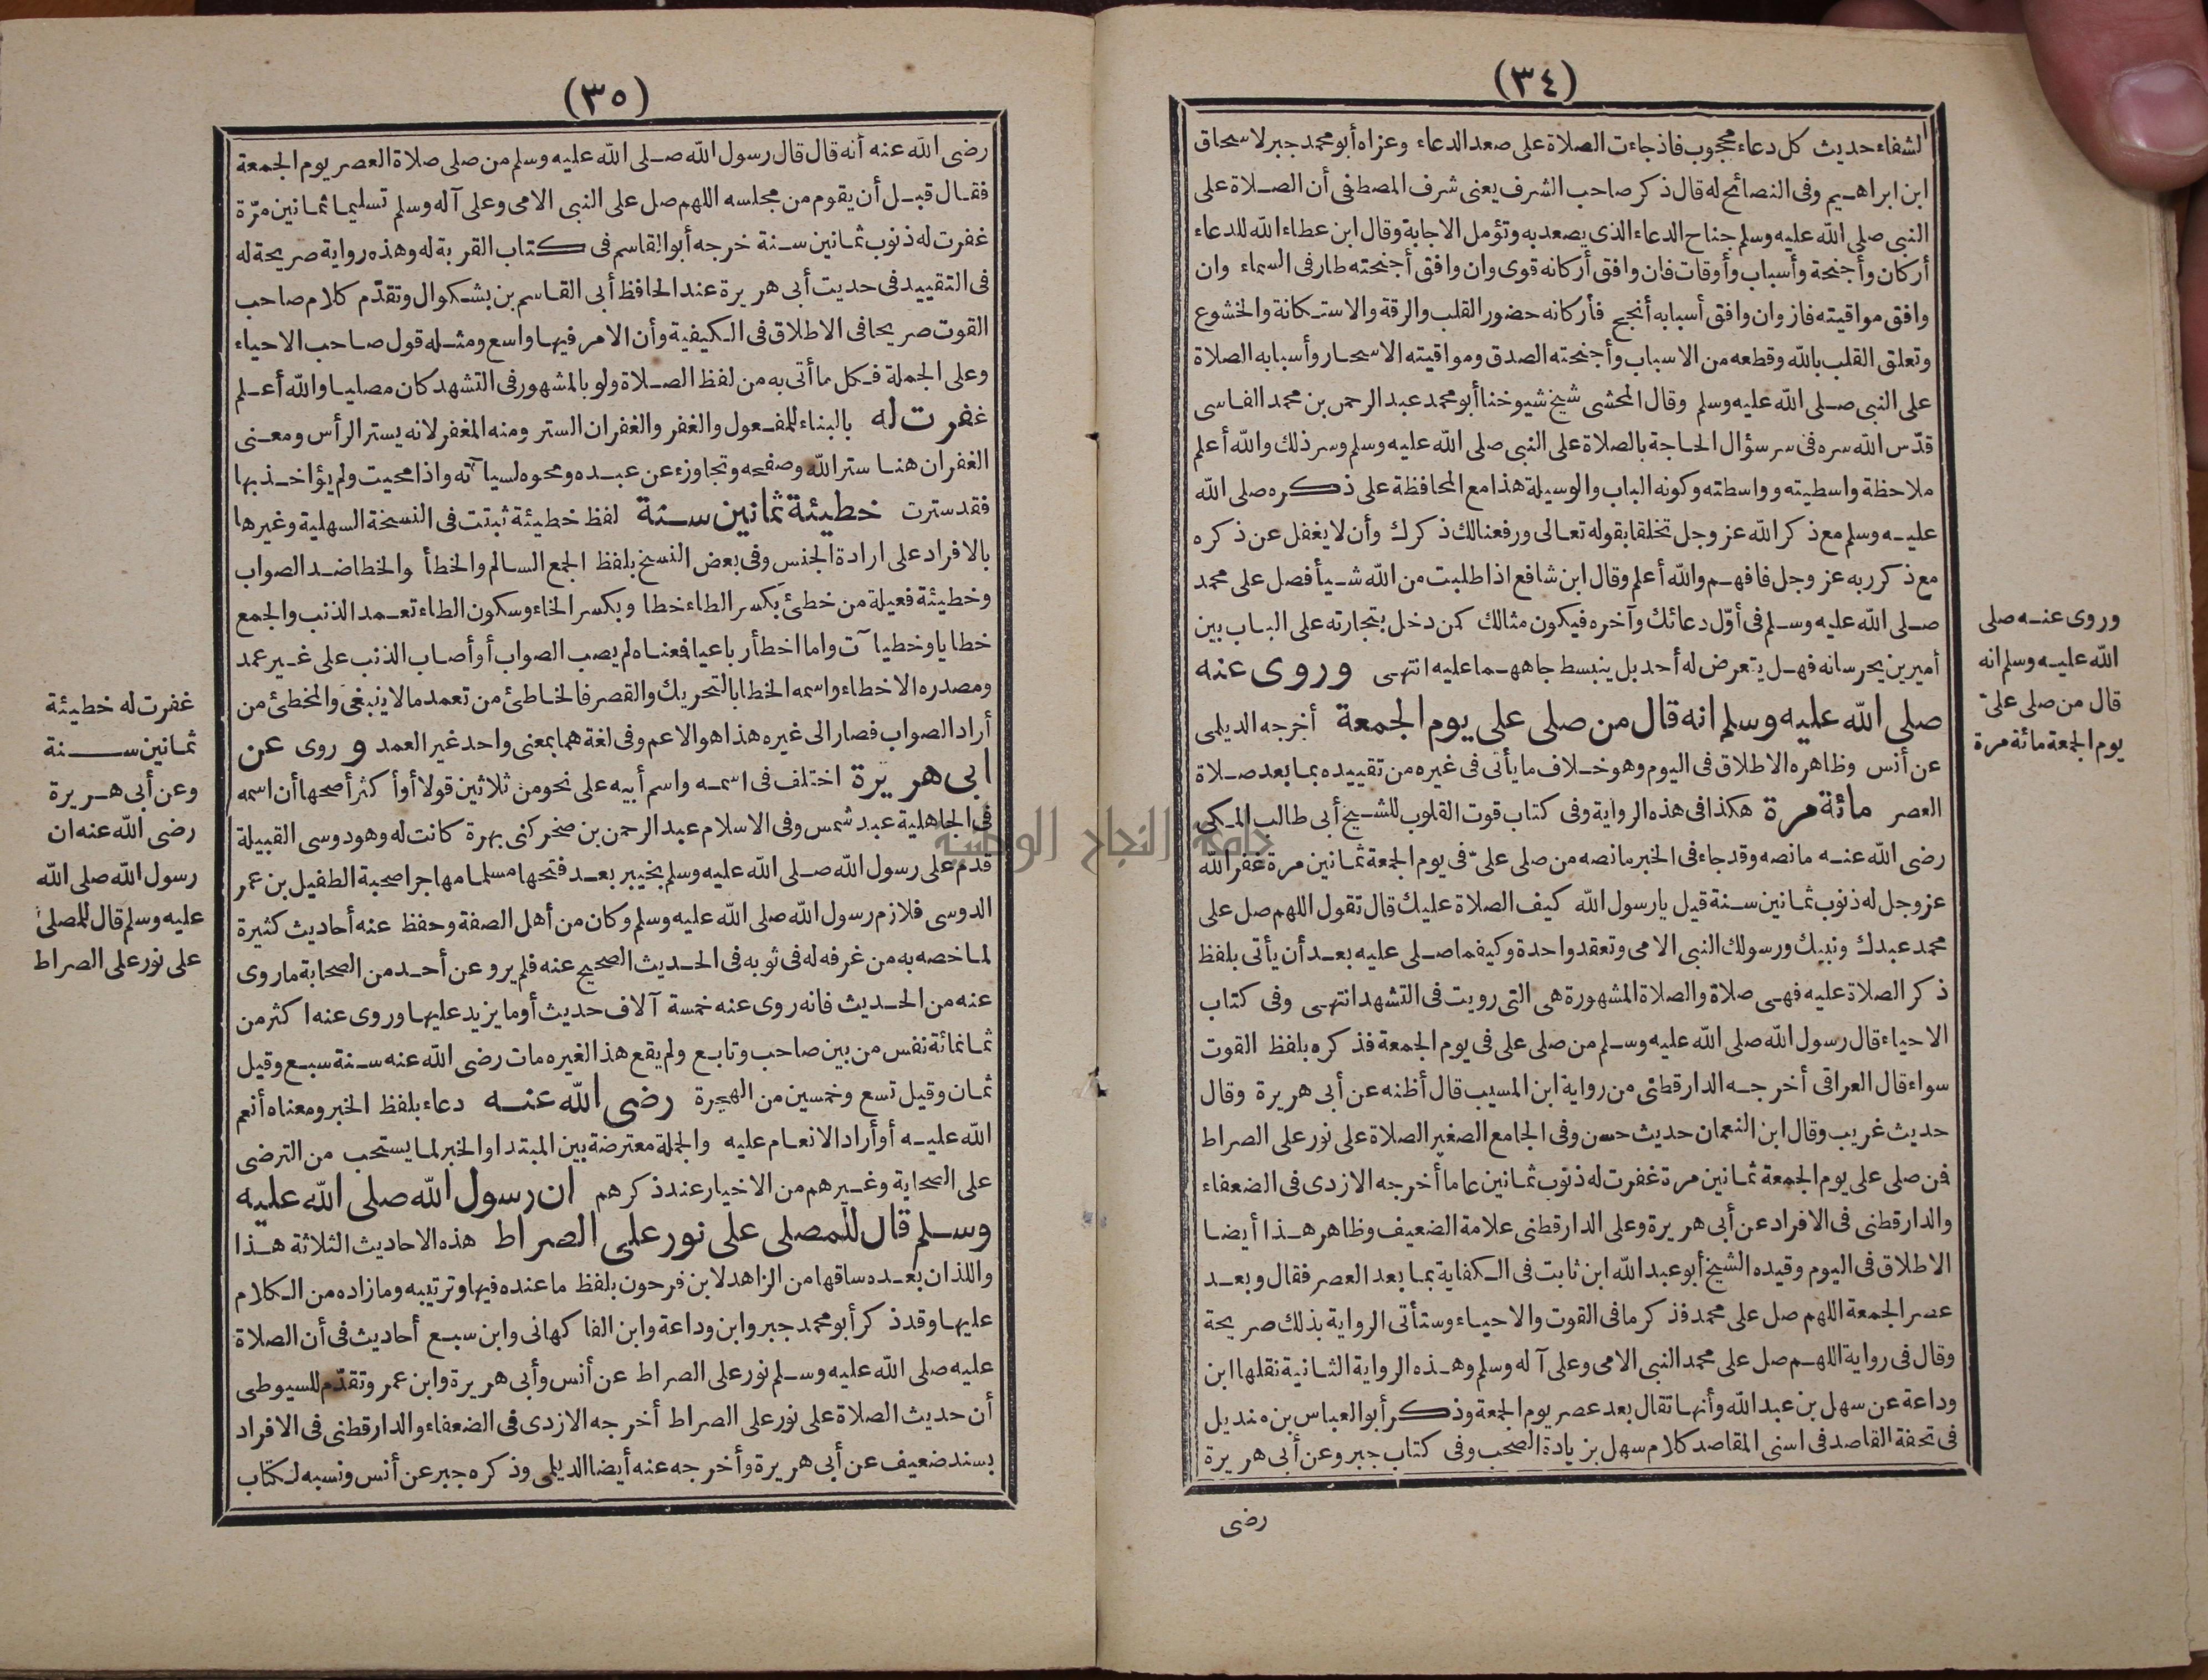 (٣٤)
الشفاء حديث كل دعاء محجوب فاذ جاءت الصلاة على صعد الدعاء وعزاه أبو محمد جبر لاسحاق
ابن ابراهيم وفى النصائح له قال ذكر صاحب الشرف يعنى شرف المصطفى أن الصلاة على
النبى صلى الله عليه وسلم جناح الدعاء الذى يصعد به وتؤمل الاجابة وقال ابن عطاء الله للدعاء
أركان وأجنحة وأسباب وأوقات فان وافق أركانه قوى وان وافق أجنحته طار فى السماء وان
وافق مواقيته فاز وان وافق أسبابه أنجح فأركانه حضور القلب والرقة والاستكانة والخشوع
وتعلق القلب بالله وقطعه من الاسباب وأجنحته الصدق ومواقيته الاسحار وأسبابه الصلاة
على النبى صلى الله عليه وسلم وقال المحشى شيخ شيوخنا أبو محمد عبد الرحمن بن محمد الفاسى
قدّس الله سره فى سر سؤال الحاجة بالصلاة على النبى صلى الله عليه وسلم وسر ذلك والله أعلم
ملاحظة واسطيته وواسطته وكونه الباب والوسيلة هذا مع المحافظة على ذكره صلى الله
عليه وسلم مع ذكر الله عز وجل تخلقا بقوله تعالى ورفعنا لك ذكرك وأن لا يغفل عن ذكره
مع ذكر ربه عز وجل فافهم والله أعلم وقال ابن شافع اذا طلبت من الله شيأ فصل على محمد
صلى الله عليه وسلم فى أوّل دعائك وآخره فيكون مثالك كمن دخل بتجارته على الباب بين
أميرين يحرسانه فهل يتعرض له أحد بل ينبسط جاههما عليه انتهى وروى عنه
صلى الله عليه وسلم انه قال من صلى على يوم الجمعة أخرجه الديلمى
عن أنس وظاهره الاطلاق فى اليوم وهو خلاف ما يأتى فى غيره من تقييده بما بعد صلاة
العصر مائة مرة هكذا فى هذه الرواية وفى كتاب قوت القلوب للشيخ أبى طالب المكى
رضى الله عنه ما نصه وقد جاء فى الخبر ما نصه من صلى علىّ فى يوم الجمعة ثمانين مرة غفر الله
عز وجل له ذنوب ثمانين سنة قيل يا رسول الله كيف الصلاة عليك قال تقول اللهم صل على
محمد عبدك ونبيك ورسولك النبى الامى وتعقد واحدة وكيفما صلى عليه بعد أن يأتى بلفظ
ذكر الصلاة عليه فهى صلاة والصلاة المشهورة هى التى رويت فى التشهد انتهى وفى كتاب
الاحياء قال رسول الله صلى الله عليه وسلم من صلى على فى يوم الجمعة فذكره بلفظ القوت
سواء قال العراقى أخرجه الدارقطنى من رواية ابن المسيب قال أظنه عن أبى هريرة وقال
حديث غريب وقال ابن النعمان حديث حسن وفى الجامع الصغير الصلاة على نور على الصراط
فمن صلى على يوم الجمعة ثمانين مرة غفرت له ذنوب ثمانين عاما أخرجه الازدى فى الضعفاء
والدارقطنى فى الافراد عن أبى هريرة وعلى الدارقطنى علامة الضعيف وظاهر هذا أيضا
الاطلاق فى اليوم وقيده الشيخ أبو عبد الله ابن ثابت فى الكفاية بما بعد العصر فقال وبعد
عصر الجمعة اللهم صل على محمد فذكر ما فى القوت والاحياء وستأتى الرواية بذلك صريحة
وقال فى رواية اللهم صل على محمد النبى الامى وعلى آله وسلم وهذه الرواية الثانية نقلها ابن
وداعة عن سهل بن عبد الله وأنها تقال بعد عصر يوم الجمعة وذكر أبو العباس بن منديل
فى تحفة القاصد فى اسنى المقاصد كلام سهل بزيادة الصحب وفى كتاب جبر وعن أبى هريرة
رضى
وروى عنه صلى
الله عليه وسلم انه
قال من صلى علىّ
يوم الجمعة مائة مرة
(٣٥)
رضى الله عنه أنه قال قال رسول الله صلى الله عليه وسلم من صلى صلاة العصر يوم الجمعة
فقال قبل أن يقوم من مجلسه اللهم صل على النبى الامى وعلى آله وسلم تسليما ثمانين مرّة
غفرت له ذنوب ثمانين سنة خرجه أبو القاسم فى كتاب القربة له وهذه رواية صريحة له
فى التقييد فى حديث أبى هريرة عند الحافظ أبى القاسم بن بشكوال وتقدّم كلام صاحب
القوت صريحا فى الاطلاق فى الكيفية وأن الامر فيها واسع ومثله قول صاحب الاحياء
وعلى الجملة فكل ما أتى به من لفظ الصلاة ولو بالمشهور فى التشهد كان مصليا والله أعلم
غفرت له بالبناء للمفعول والغفر والغفران الستر ومنه المغفر لانه يستر الرأس ومعنى
الغفران هنا ستر الله وصفحه وتجاوزه عن عبده ومحوه لسيآته واذا محيت ولم يؤاخذ بها
فقد سترت خطيئة ثمانين سنة لفظ خطيئة ثبتت فى النسخة السهلية وغيرها
بالافراد على ارادة الجنس وفى بعض النسخ بلفظ الجمع السالم والخطأ والخطا ضد الصواب
وخطيئة فعيلة من خطئ بكسر الطاء خطا وبكسر الخاء وسكون الطاء تعمد الذنب والجمع
خطايا وخطيآت واما اخطأ رباعيا فعناه لم يصب الصواب أو أصاب الذنب على غير عمد
ومصدره الاخطاء واسمه الخطا بالتحريك والقصر فالخاطئ من تعمد ما لا ينبغى والمخطئ من
أراد الصواب فصار الى غيره هذا هو الاعم وفى لغة هما بمعنى واحد غير العمد وروى عن
ابى هريرة اختلف فى اسمه واسم أبيه على نحو من ثلاثين قولا أو أكثر أصحها أن اسمه
فى الجاهلية عبد شمس وفى الاسلام عبد الرحمن بن صخر كنى بهرة كانت له وهو دوسى القبيلة
قدم على رسول الله صلى الله عليه وسلم بخيبر بعد فتحها مسلما مهاجرا صحبة الطفيل بن عمر
الدوسى فلازم رسول الله صلى الله عليه وسلم وكان من أهل الصفة وحفظ عنه أحاديث كثيرة
لما خصه به من غرفه له فى ثوبه فى الحديث الصحيح عنه فلم يرو عن أحد من الصحابة ما روى
عنه من الحديث فانه روى عنه خمسة آلاف حديث أو ما يزيد عليها وروى عنه اكثر من
ثمانمائة نفس من بين صاحب وتابع ولم يقع هذا لغيره مات رضى الله عنه سنة سبع وقيل
ثمان وقيل تسع وخمسين من الهجرة رضى الله عنه دعاء بلفظ الخبر ومعناه أنعم
الله عليه أو أراد الانعام عليه والجملة معترضة بين المبتدا والخبر لما يستحب من الترضى
على الصحابة وغيرهم من الاخيار عند ذكرهم ان رسول الله صلى الله عليه
وسلم قال للمصلى على نور على الصراط هذه الاحاديث الثلاثة هذا
واللذان بعده ساقها من الزاهد لابن فرحون بلفظ ما عنده فيها وترتيبه وما زاده من الكلام
عليها وقد ذكر أبو محمد جبر وابن وداعة وابن الفاكهانى وابن سبع أحاديث فى أن الصلاة
عليه صلى الله عليه وسلم نور على الصراط عن أنس وأبى هريرة وابن عمر وتقدّم للسيوطى
أن حديث الصلاة على نور على الصراط أخرجه الازدى فى الضعفاء والدارقطنى فى الافراد
بسند ضعيف عن أبى هريرة وأخرجه عنه أيضا الديلمى وذكره جبر عن أنس ونسبه لكتاب
غفرت له خطيئة
ثمانين سنة
وعن أبى هريرة
رضى الله عنه ان
رسول الله صلى الله
عليه وسلم قال للمصلى
على نور على الصراط
جامعة النجاح الوطنية